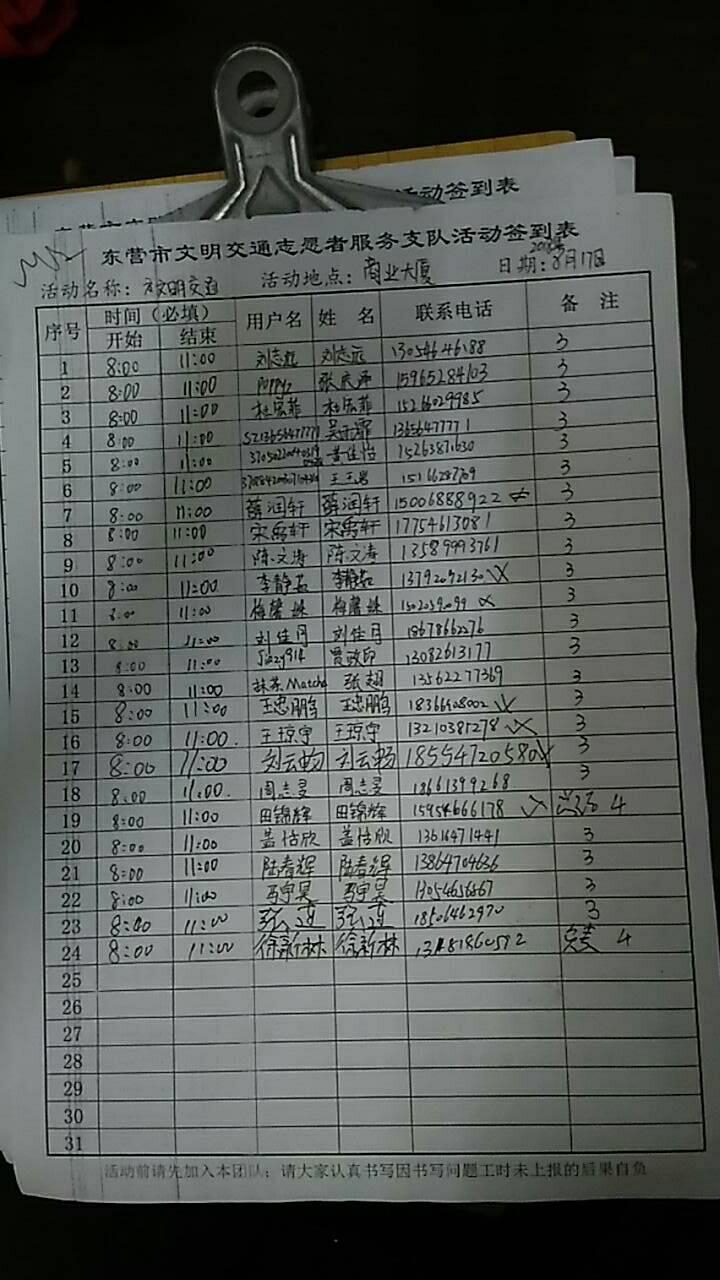 活动签到表
东营市文明交通志愿者服务支队活动签到表
活动名称：文明交通 活动地点：商业大厦 日期：8月17日
序号 时间（必填） 用户名 姓 名 联系电话 备 注
开始 结束
1 8:00 11:00 刘志远 刘志远 13054646188 3
2 8:00 11:00 15965284103 3
3 8:00 11:00 杜宏菲 杜宏菲 15266029985 3
4 8:00 11:00 13656477771 3
5 8:00 11:00 黄佳怡 15263871630 3
6 8:00 11:00 3
7 8:00 11:00 薛润轩 薛润轩 15006888922 3
8 8:00 11:00 宋禹轩 宋禹轩 17754613081 3
9 8:00 11:00 陈文海 陈文海 13589993761 3
10 8:00 11:00 李静茹 李静茹 13792092130 3
11 8:00 11:00 3
12 8:00 11:00 刘佳月 刘佳月 18678662276 3
13 8:00 11:00 贾政印 13082613177 3
14 8:00 11:00 抹茶Matcha 张翅 13562277369 3
15 8:00 11:00 王忠鹏 王忠鹏 18366908002 3
16 8:00 11:00 王琼宇 王琼宇 13210381278 3
17 8:00 11:00 刘云畅 刘云畅 18554720580 3
18 8:00 11:00 周志旻 周志旻 18661399268 3
19 8:00 11:00 田锦辉 田锦辉 15954666178 4
20 8:00 11:00 盖怡欣 盖怡欣 13616471441 3
21 8:00 11:00 陆春辉 陆春辉 13864704636 3
22 8:00 11:00 马宇昊 马宇昊 13054656667 3
23 8:00 11:00 18506462970 3
24 8:00 11:00 徐新林 徐新林 4
25
26
27
28
29
30
31
活动前请先加入本团队；请大家认真书写因书写问题工时未上报的后果自负